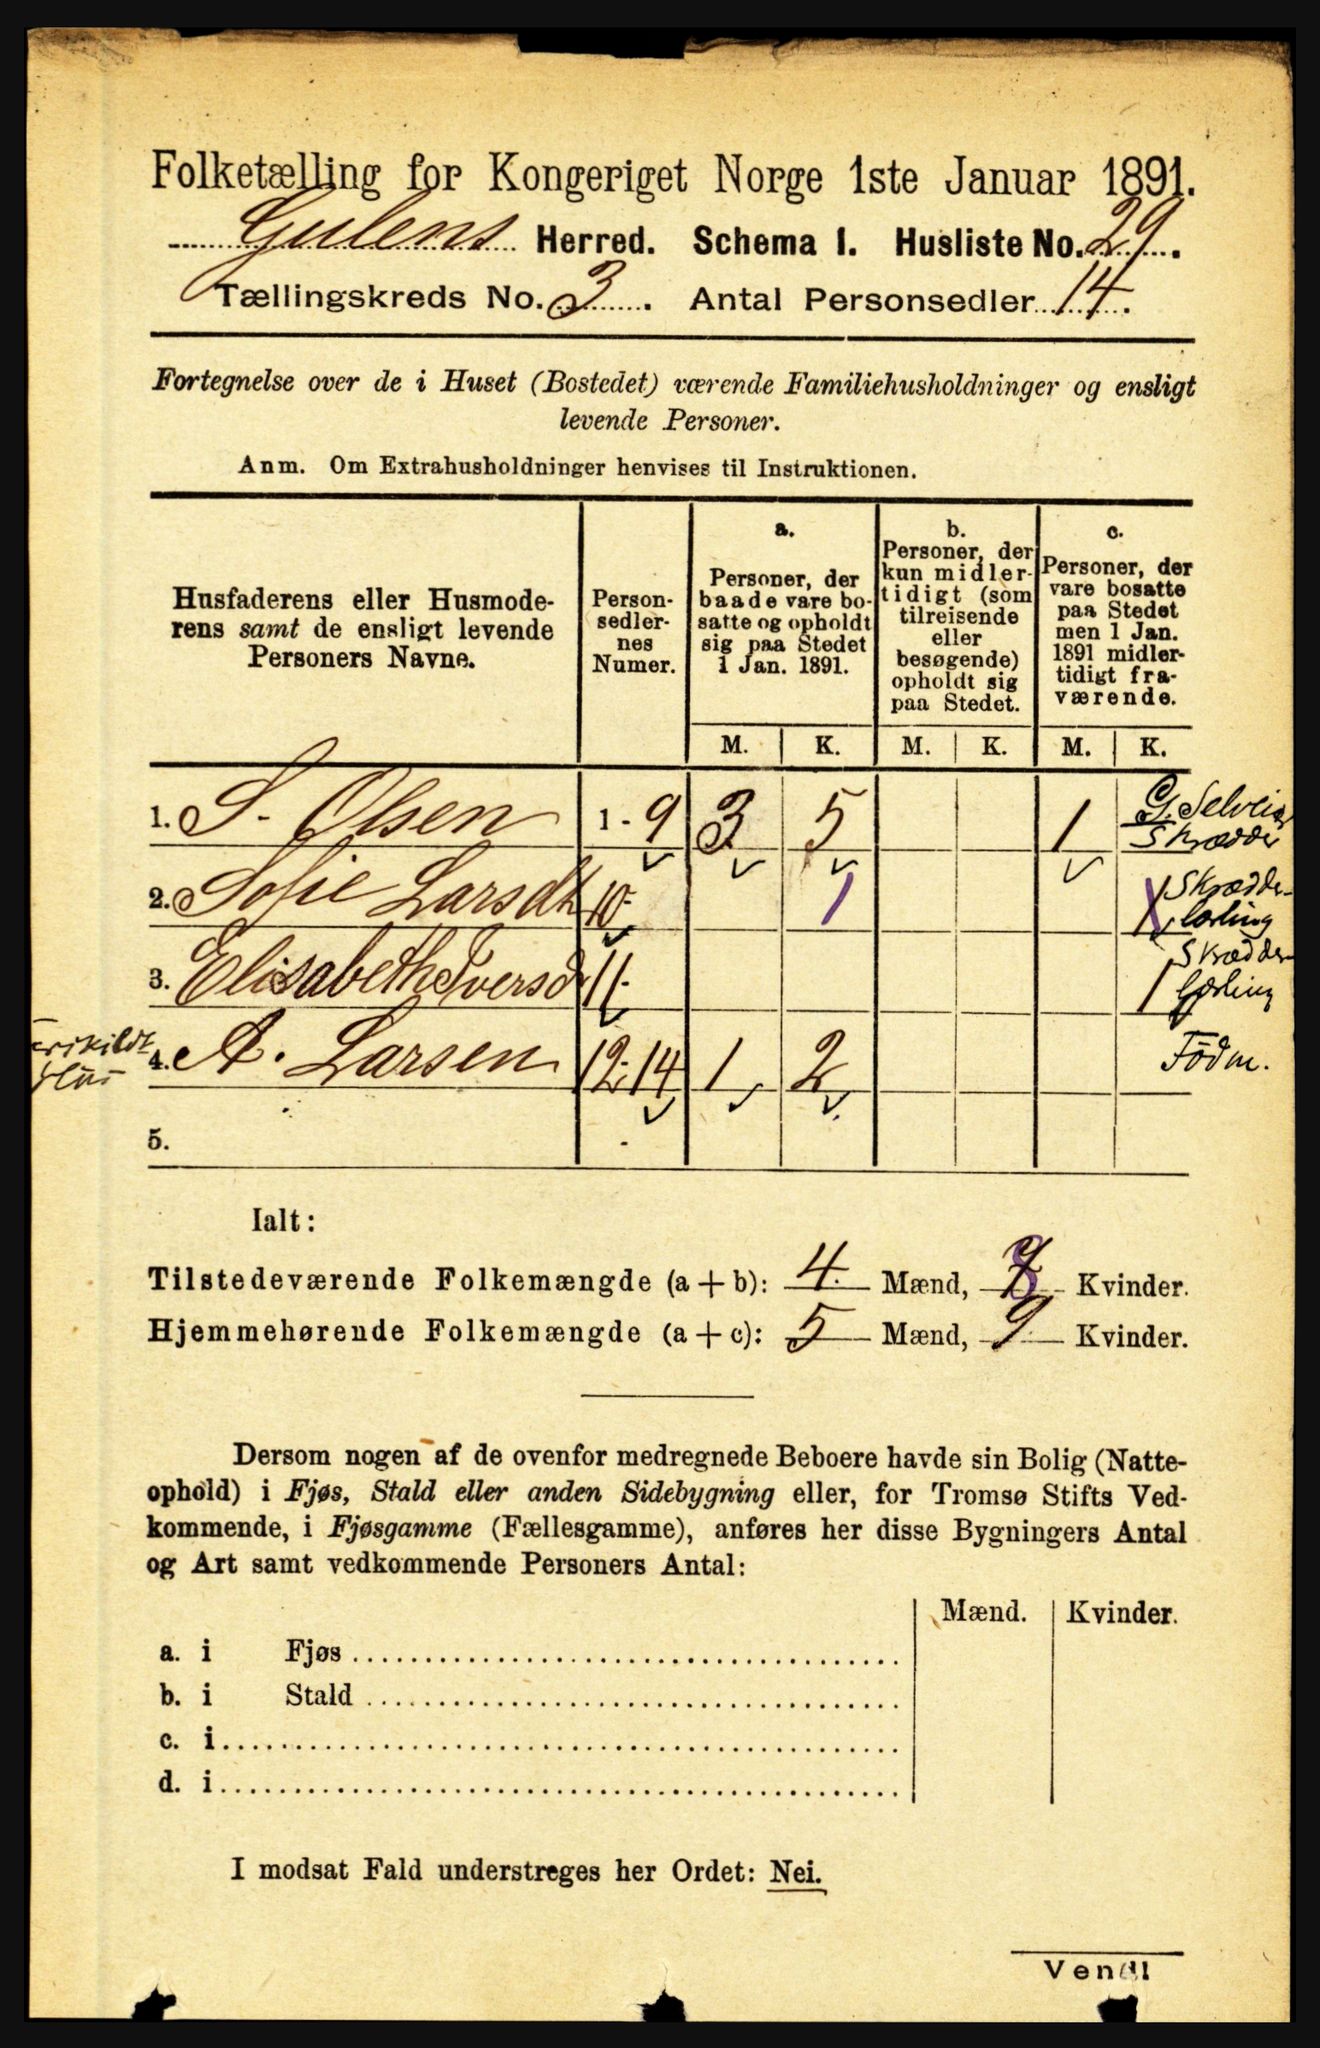 Folketælling for Kongeriget Norge 1ste Januar 1891.
Gulens Herred. Schema I. Husliste No. 29.
Tællingskreds No. 3. Antal Personsedler 14.
Fortegnelse over de i Huset (Bostedet) værende Familiehusholdninger og ensligt
levende Personer.
Anm. Om Extrahusholdninger henvises til Instruktionen.
Husfaderens eller Husmode-
rens samt de ensligt levende
Personers Navne.
Person-
sedler-
nes
Numer.
a.
Personer, der
baade vare bo-
satte og opholdt
sig paa Stedet
1 Jan. 1891.
b.
Personer, der
kun midler-
tidigt (som
tilreisende
eller
besøgende)
opholdt sig
paa Stedet.
c.
Personer, der
vare bosatte
paa Stedet
men 1 Jan.
1891 midler-
tidigt fra-
værende.
M. K. M. K. M. K.
1. S. Olsen 1-9 3 5 1 G. Selveier
Skrædder
2. Sofie Larsdt 10 1 1 Skrædder-
lærling
3. Elisabeth Iversd 11 1 Skrædder-
lærling
4. A. Larsen 12-14 1 2 Födm.
5.
Ialt:
Tilstedeværende Folkemængde (a + b): 4 Mænd, 8 Kvinder.
Hjemmehørende Folkemængde (a + c): 5 Mænd, 9 Kvinder.
Dersom nogen af de ovenfor medregnede Beboere havde sin Bolig (Natte-
ophold) i Fjøs, Stald eller anden Sidebygning eller, for Tromsø Stifts Ved-
kommende, i Fjøsgamme (Fællesgamme), anføres her disse Bygningers Antal
og Art samt vedkommende Personers Antal:
Mænd. Kvinder.
a. i Fjøs
b. i Stald
c. i
d. i
I modsat Fald understreges her Ordet: Nei.
Vend!